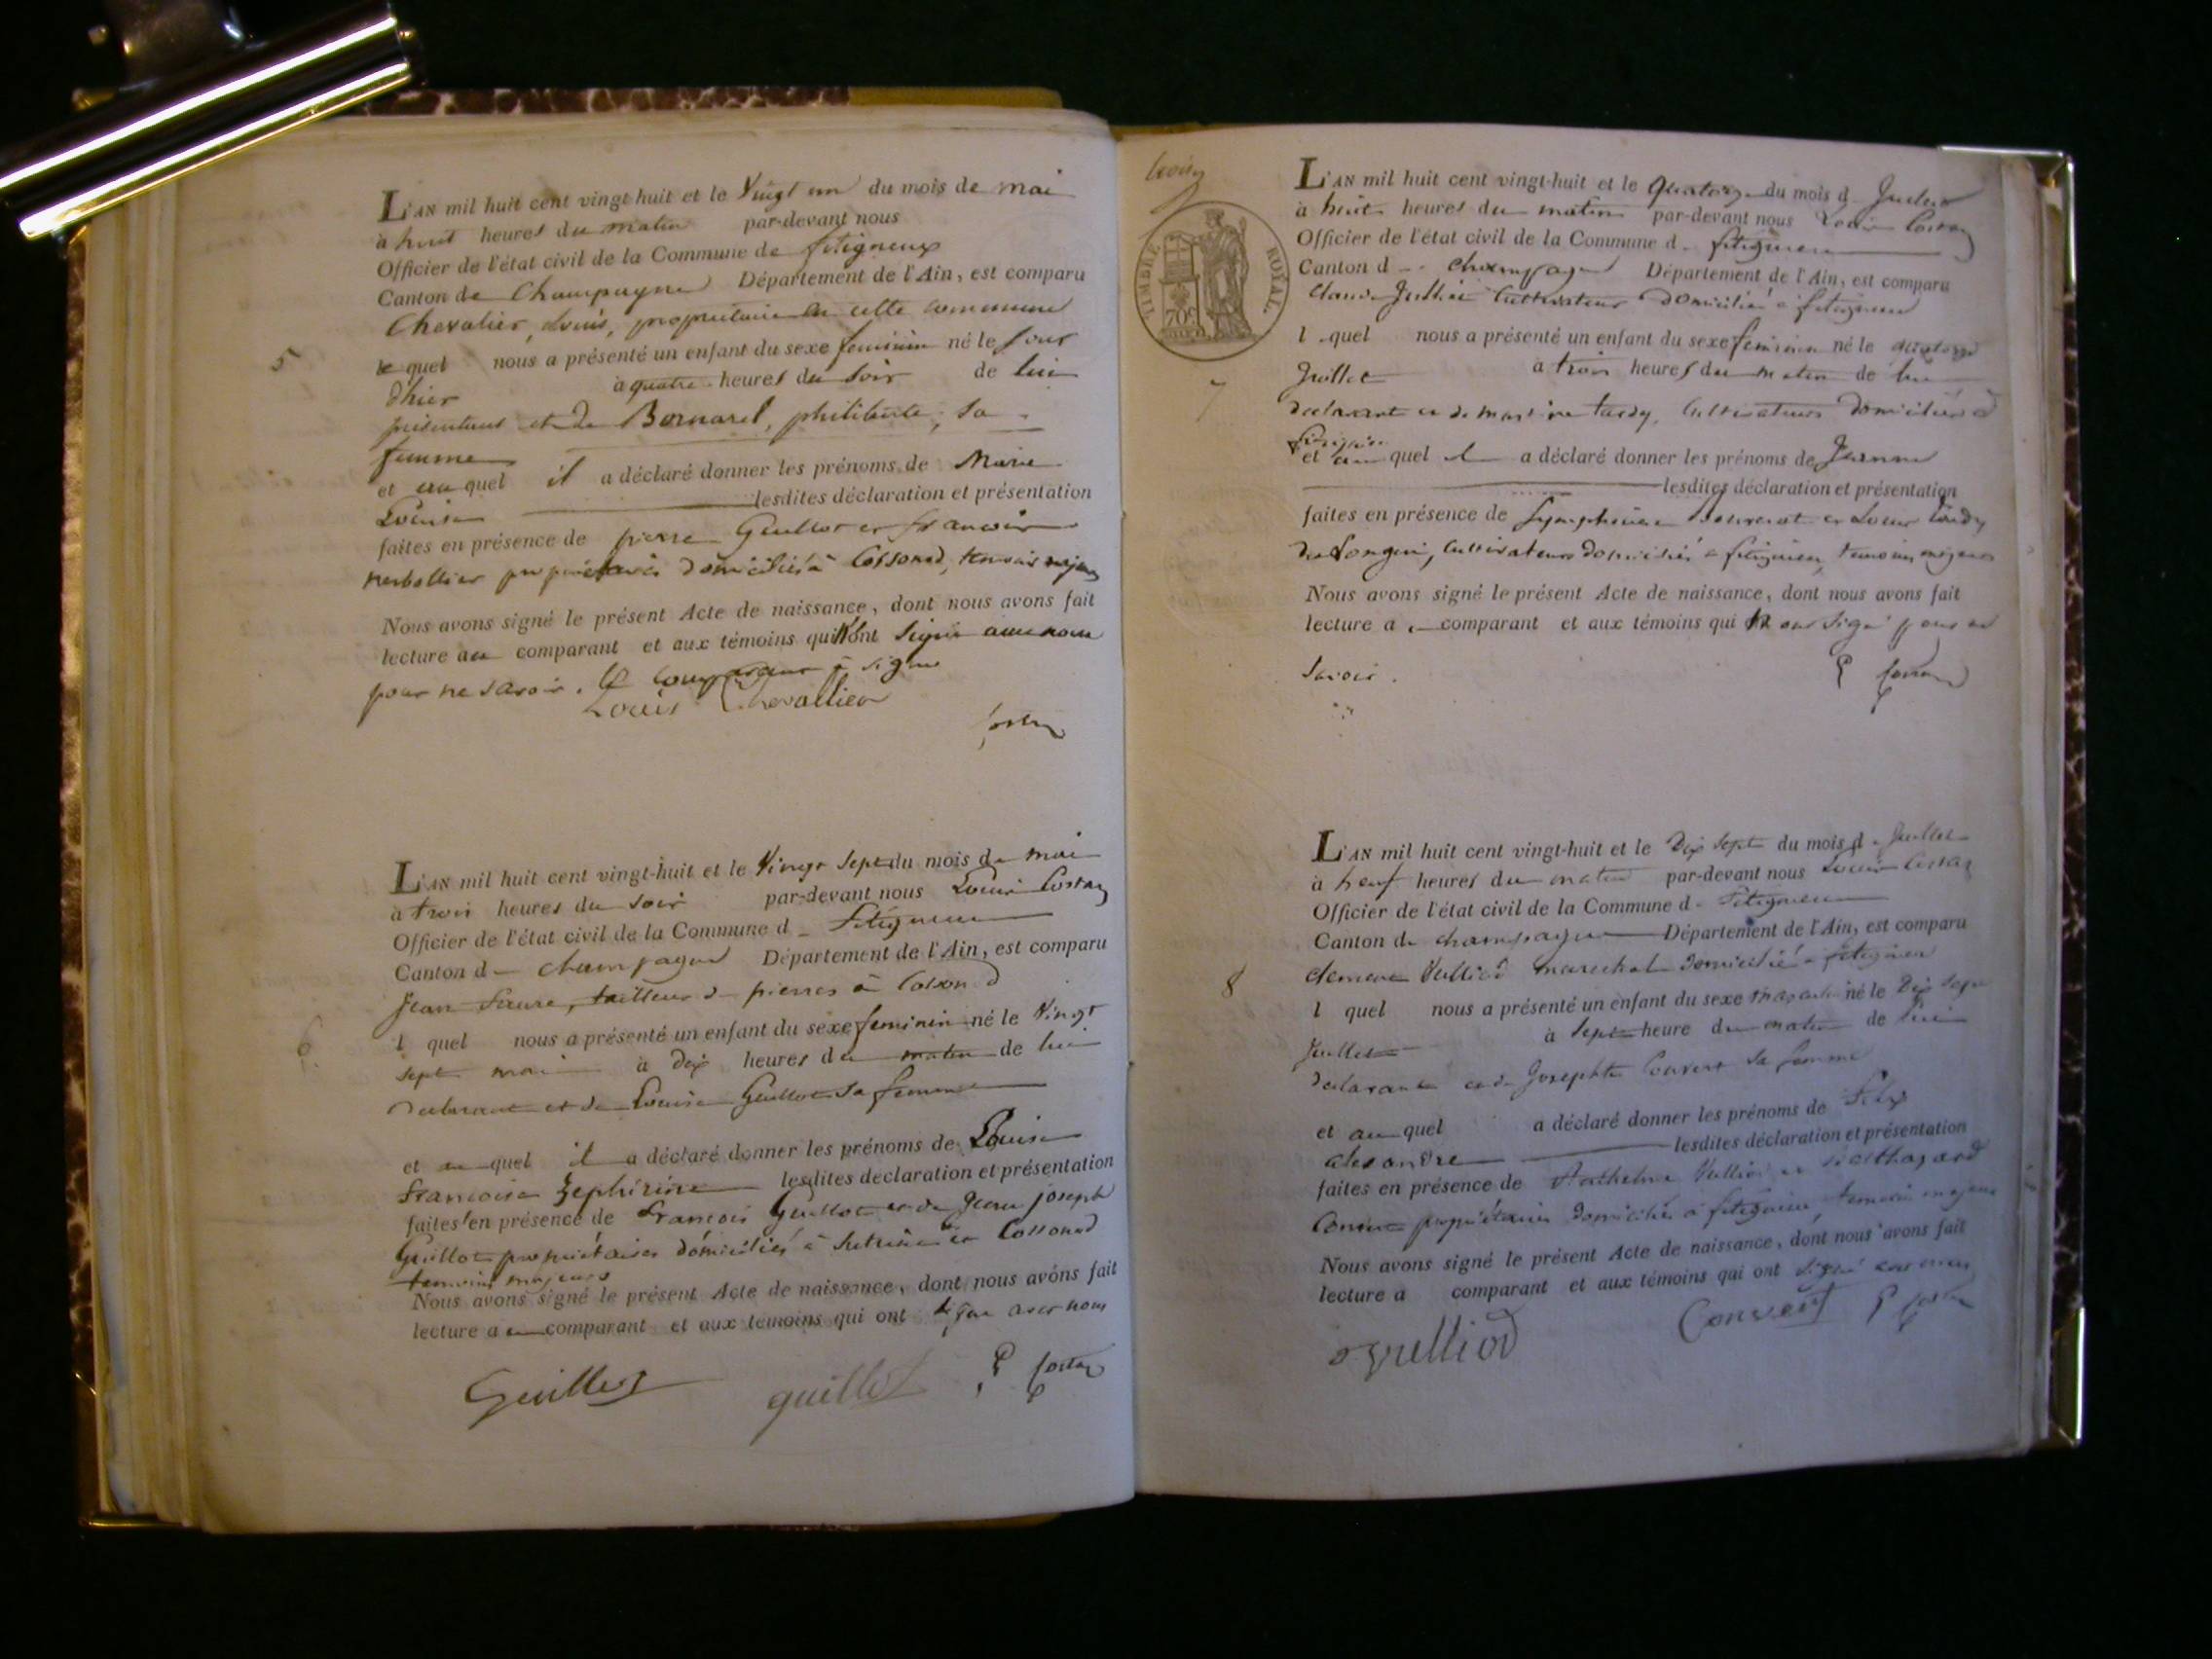 L'AN mil huit cent vingt-huit et le Vingt un du mois de mai
à huit heures du matin par-devant nous
Officier de l'état civil de la Commune de fitignieux
Canton de Champagne Département de l'Ain, est comparu
Chevalier, Louis, propriétaire en cette commune
5
le quel nous a présenté un enfant du sexe feminin né le jour
dhier à quatre heures du soir de lui
présentant et de Bornarel, philiberte, sa
femme
et au quel il a déclaré donner les prénoms de Marie
Louise lesdites déclaration et présentation
faites en présence de pierre Guillot et françois
propriétaires domiciliés à Cossonod, témoins majeurs
Nous avons signé le présent Acte de naissance, dont nous avons fait
lecture au comparant et aux témoins qui n'ont signé avec nous
pour ne savoir. le comparant à signé
Louis Chevallier
Costaz
L'AN mil huit cent vingt-huit et le Vingt sept du mois de mai
à trois heures du soir par-devant nous Louis Costaz
Officier de l'état civil de la Commune d fitignieu
Canton d champagne Département de l'Ain, est comparu
Jean tailleur de pierres à Cossonod
6
l quel nous a présenté un enfant du sexe feminin né le Vingt
sept mai à dix heures du matin de lui
declarant et de Louise Guillot sa femme
et au quel il a déclaré donner les prénoms de Louise
francoise Zephirine lesdites déclaration et présentation
faites en présence de francois Guillot et de Jean joseph
Guillot propriétaires domiciliés à et Cossonod
temoins majeurs
Nous avons signé le présent Acte de naissance, dont nous avons fait
lecture a u comparant et aux témoins qui ont signé avec nous
Guillot guillot Costaz
TIMBRE ROYAL
70c
L'AN mil huit cent vingt-huit et le Quatorze du mois d Juillet
à huit heures du matin par-devant nous Louis Costaz
Officier de l'état civil de la Commune d fitignieu
Canton d champagne Département de l'Ain, est comparu
claude cultivateur domicilié à fitignieu
l quel nous a présenté un enfant du sexe feminin né le quatorze
Juillet à trois heures du matin de lui
7
declarant et de tardy, cultivateurs domiciliés à
fitignieu
et au quel il a déclaré donner les prénoms de Jeanne
lesdites déclaration et présentation
faites en présence de et Louis tardy
cultivateurs domiciliés à fitignieu, temoins majeurs
Nous avons signé le présent Acte de naissance, dont nous avons fait
lecture a comparant et aux témoins qui n ont signé pour ne
savoir. Costaz
L'AN mil huit cent vingt-huit et le Dix sept du mois d Juillet
à neuf heures du matin par-devant nous Louis Costaz
Officier de l'état civil de la Commune d fitignieu
Canton de champagne Département de l'Ain, est comparu
clement Vulliod marechal domicilié à fitignieu
8
l quel nous a présenté un enfant du sexe masculin né le Dix sept
Juillet à sept heure du matin de lui
declarant et de Josephte Convert sa femme
et au quel a déclaré donner les prénoms de felix
alexandre lesdites déclaration et présentation
faites en présence de Anthelme Vulliod et
Convert propriétaires domiciliés à fitignieu, temoins majeurs
Nous avons signé le présent Acte de naissance, dont nous avons fait
lecture a comparant et aux témoins qui ont signé avec nous
vulliod Convert Costaz